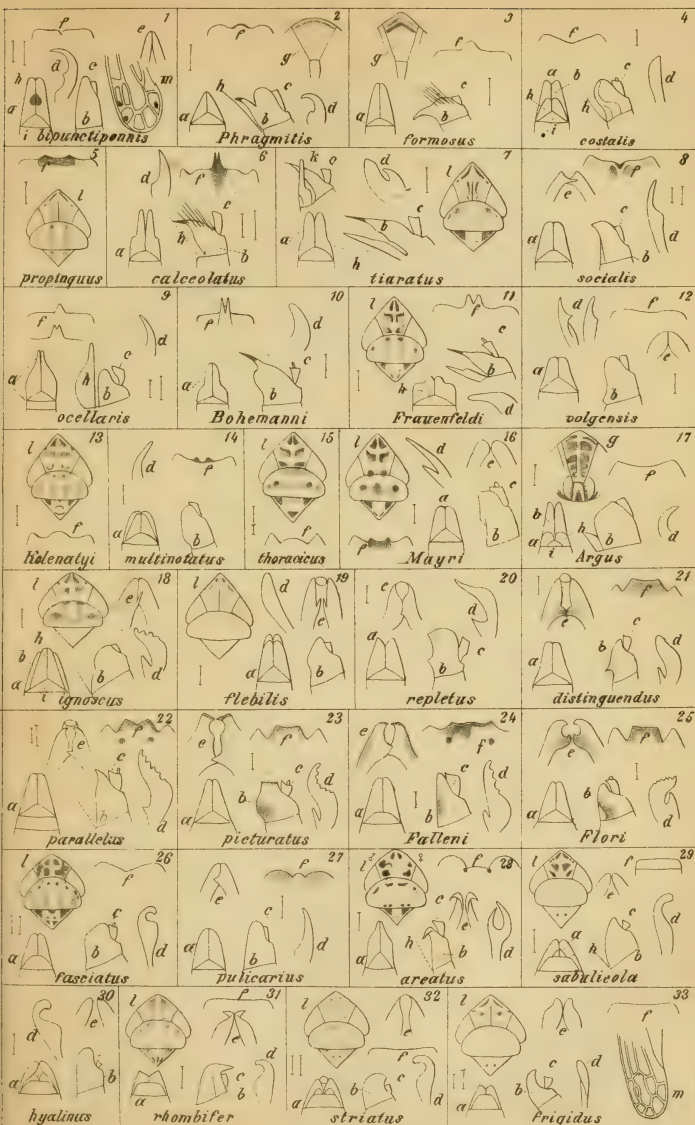 1
f
e
d
c
h
m
a
b
i bipunctipennis
2
f
g
h
c
a
b
d
Phragmitis
3
f
g
c
a
b
formosus
4
f
a
b
c
d
h
h
i
costalis
5
f
l
propinquus
6
f
d
c
a
h
b
calceolatus
7
k
c
d
l
b
c
a
h
tiaratus
8
f
e
c
d
a
b
socialis
9
f
d
c
a
h
b
ocellaris
10
f
d
c
a
b
Bohemanni
11
l
f
c
b
h
d
Frauenfeldi
12
d
f
e
c
a
b
volgensis
13
l
f
Kolenatyi
14
d
f
a
b
multinotatus
15
l
f
thoracicus
16
l
d
e
c
a
b
f
Mayri
17
g
f
b
a
h
b
d
i
Argus
18
l
e
h
c
b
d
a
b
i ignoscus
19
l
d
e
c
a
b
flebilis
20
e
d
a
b
c
repletus
21
f
e
c
b
d
a
distinguendus
22
e
f
c
a
b
d
parallelus
23
e
f
c
b
d
a
picturatus
24
e
f
c
d
a
b
Falleni
25
f
e
c
b
a
d
Flori
26
l
f
c
a
b
d
fasciatus
27
f
e
c
a
b
d
pulicarius
28
l ♂ ♀
f
c
e
a
h
b
d
areatus
29
l
f
e
c
d
a
h
b
sabulicola
30
e
d
a
b
hyalinus
31
l
f
e
d
c
a
b
rhombifer
32
l
e
f
c
a
b
d
striatus
33
l
e
f
d
c
b
a
m
frigidus